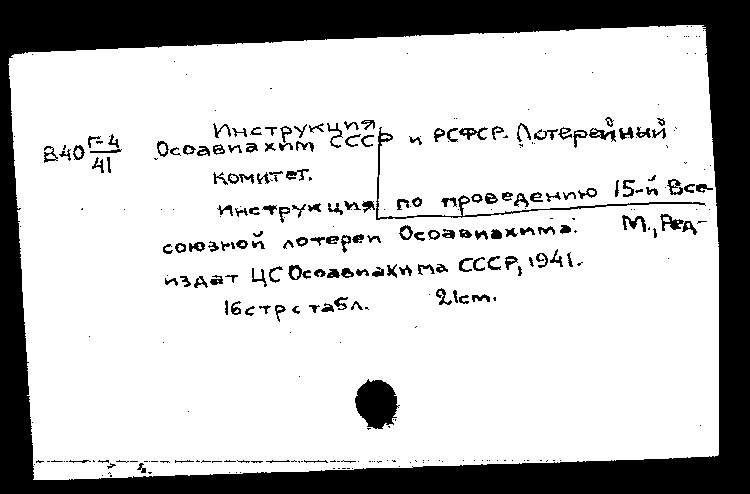 Инструкция
В40 Г-4/41 Осоавиахим СССР и РСФСР. Лотерейный
комитет.
Инструкция по проведению 15-й Все-
союзной лотереи Осоавиахима. М., Ред-
издат ЦС Осоавиахима СССР, 1941.
16 стр с табл. 21 см.